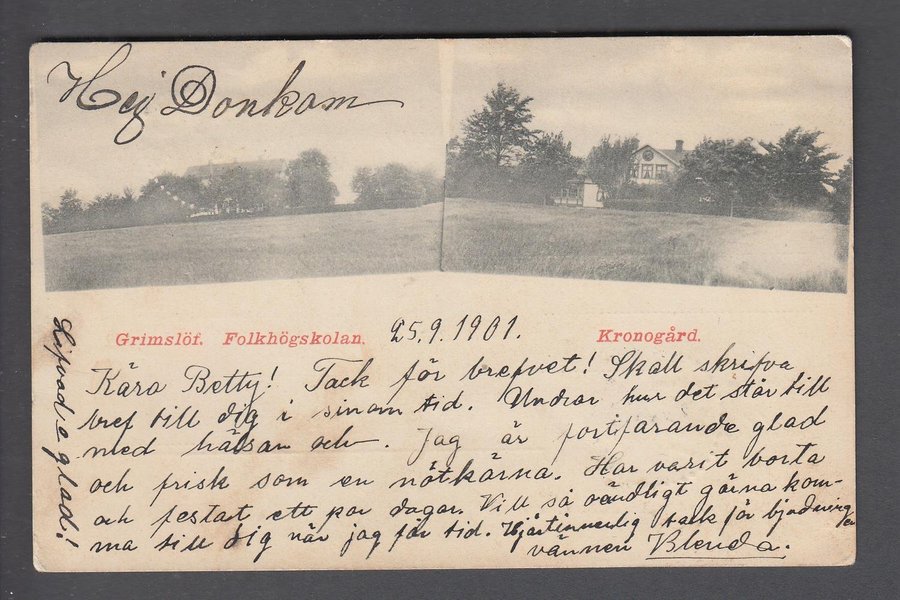 Hej Donkam
Grimslöf. Folkhögskolan. 25.9.1901. Kronogård.
Kära Betty! Tack för brefvet! Skall skrifva
bref till dig i sinom tid. Undrar hur det står till
med hälsan och. Jag är fortfarande glad
och frisk som en nötkärna. Har varit borta
och festat ett par dagar. Vill så oändligt gärna kom-
ma till dig när jag får tid. Hjärtinnerlig tack för bjudning
vännen Blenda.
glad!